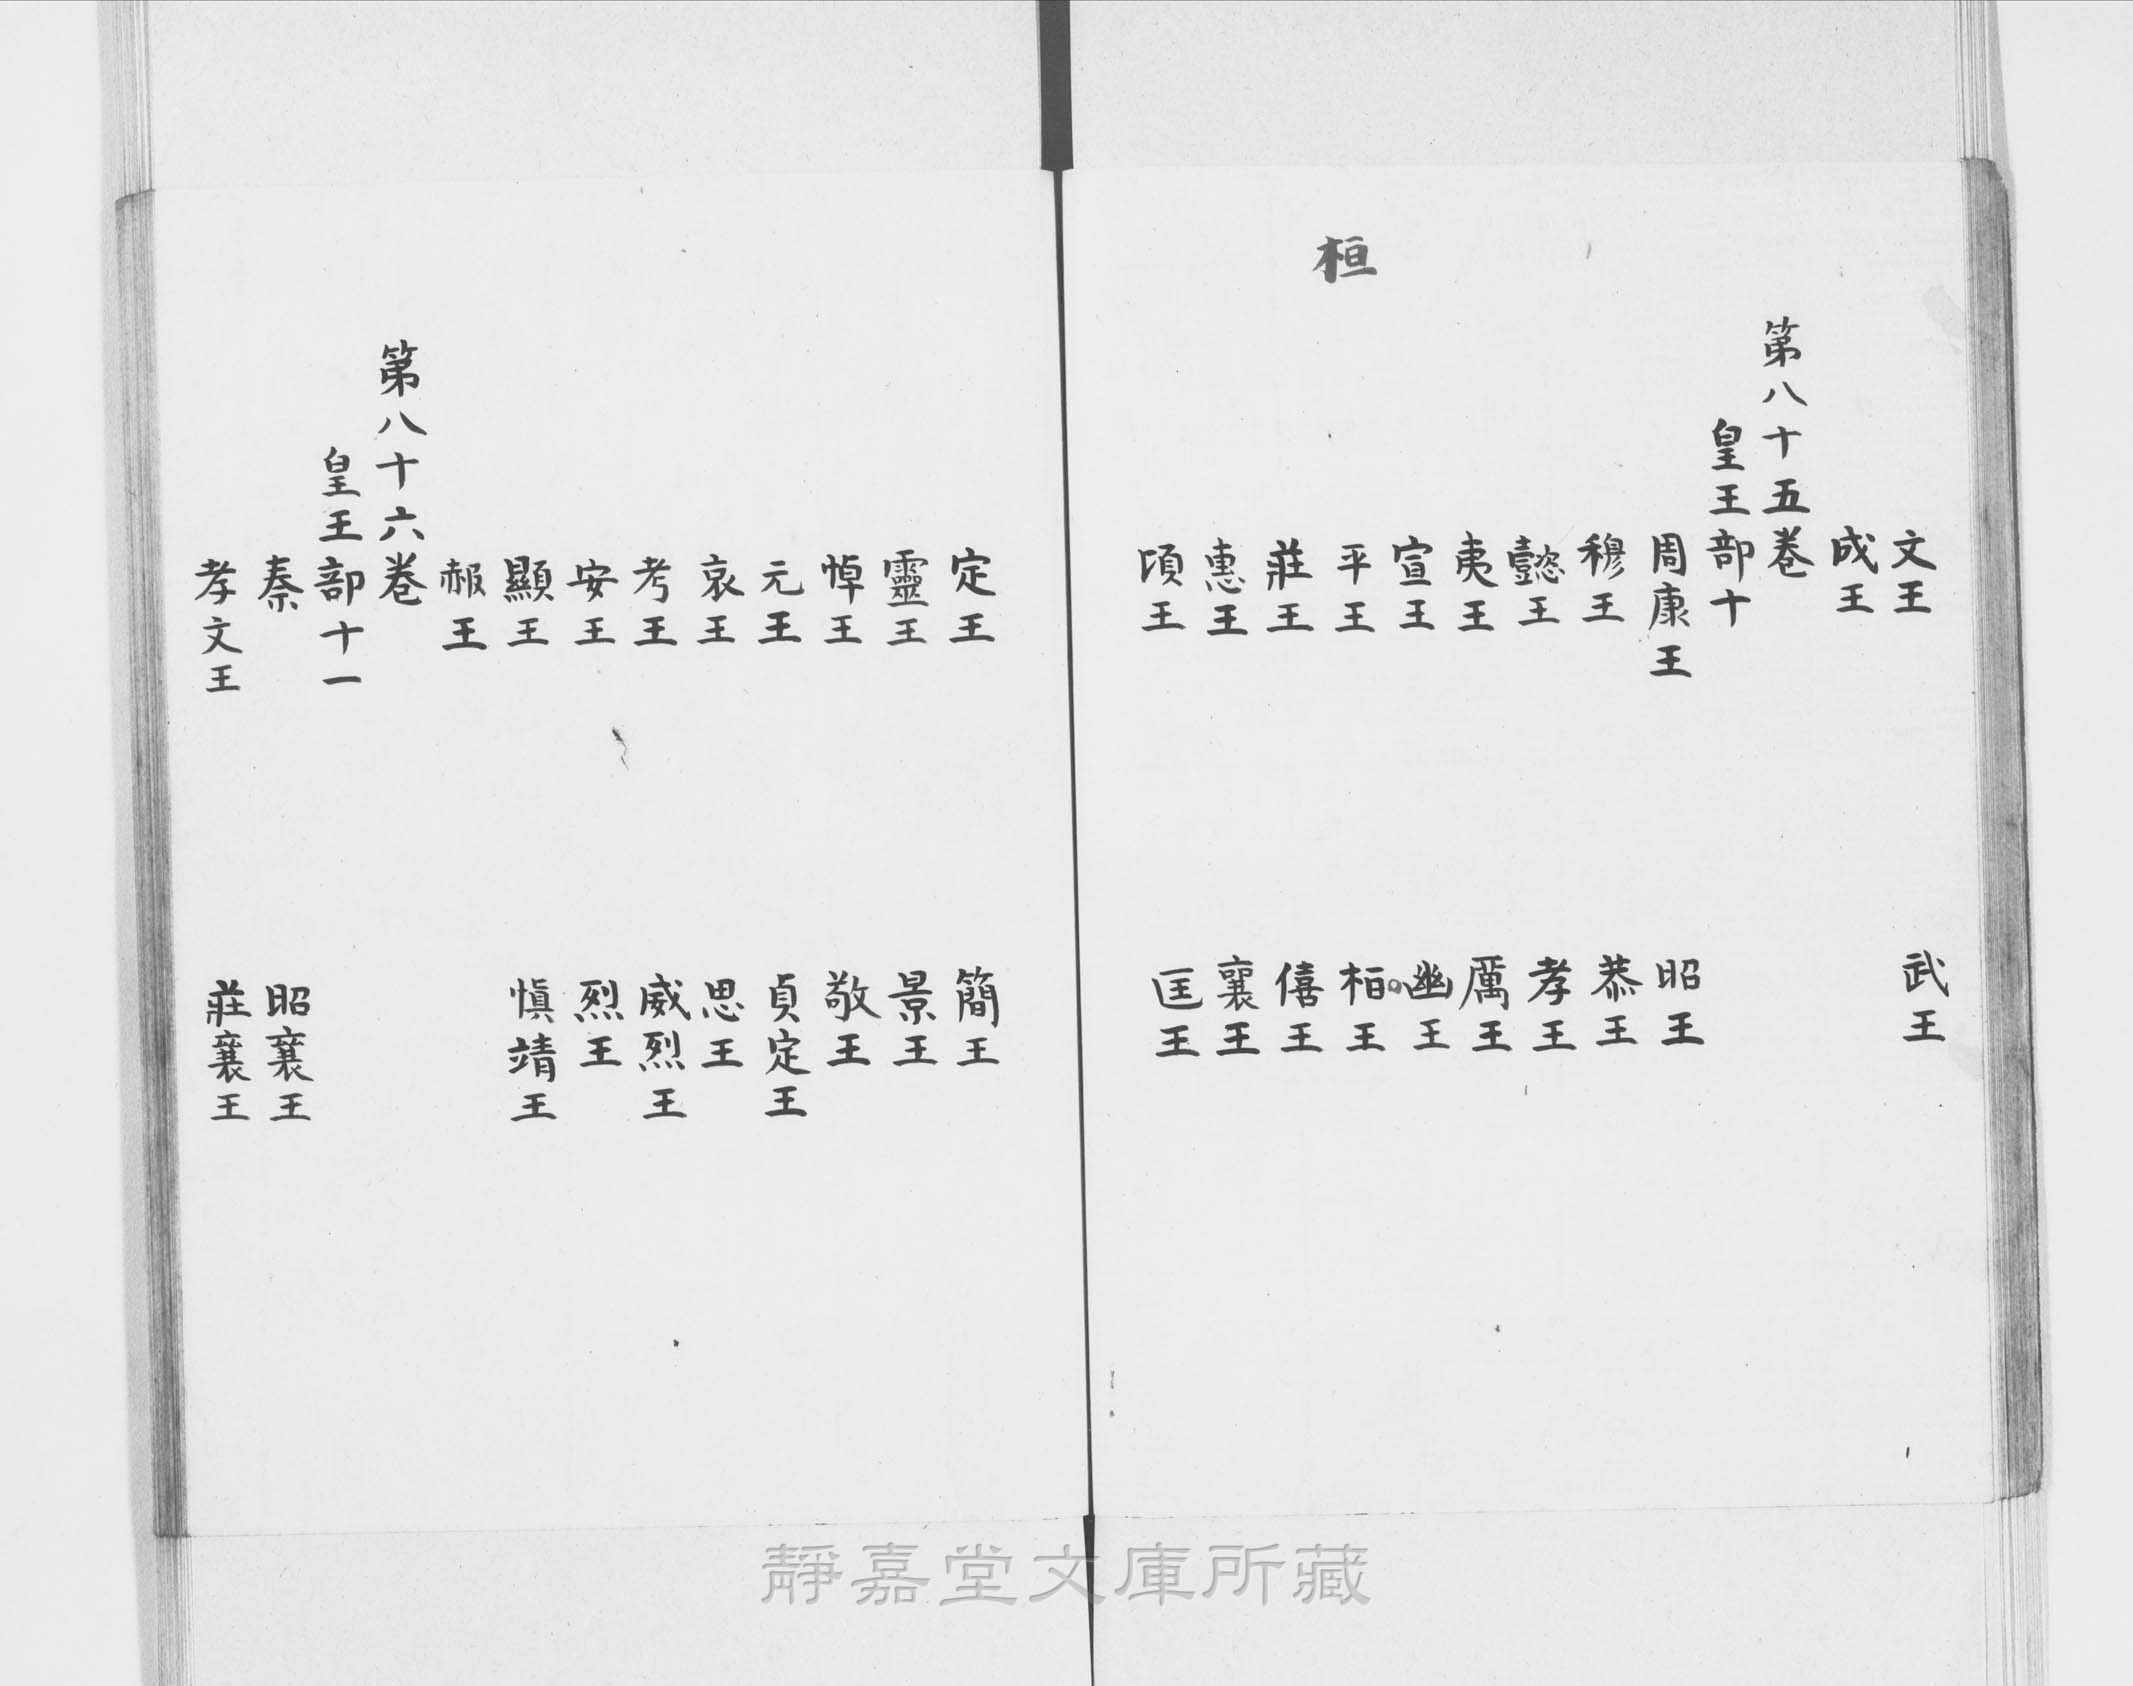 文王　武王
成王
第八十五巻
皇王部十
周康王　昭王
穆王　恭王
懿王　孝王
夷王　厲王
宣王　幽王
平王　桓王
桓
莊王　僖王
惠王　襄王
頃王　匡王
定王　簡王
靈王　景王
悼王　敬王
元王　貞定王
哀王　思王
考王　威烈王
安王　烈王
顯王　慎靖王
赧王
第八十六巻
皇王部十一
秦　昭襄王
孝文王　莊襄王
靜嘉堂文庫所藏